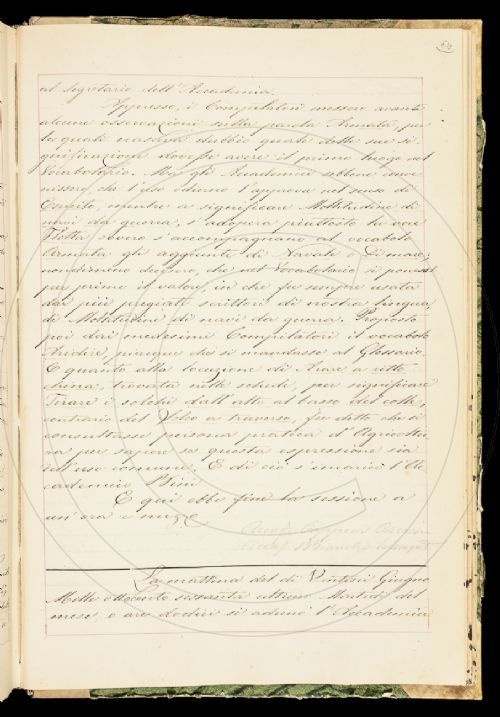 al Segretario dell'Accademia.
Appresso, i Compilatori messero avanti
alcune osservazioni sulla parola Armata, per
le quali nasceva dubbio quale delle sue si-
gnificazioni dovesse avere il primo luogo nel
Vocabolario. Ma gli Accademici sebbene conve-
nissero che l'uso odierno l'approva nel senso di
Esercito, mentre a significare Moltitudine di
navi da guerra, s'adopera piuttosto la voce
Flotta ovvero s'accompagnano al vocabolo
Armata gli aggiunti di Navale o Di mare;
nondimeno decisero, che nel Vocabolario si ponesse
per primo il valore in che fu sempre usata
dai più pregiati scrittori di nostra lingua
di Moltitudine di navi da guerra. Proposto
poi dai medesimi Compilatori il vocabolo
Aridire, piacque che si mandasse al Glossario.
E quanto alla locuzione di Arare a ritto
china, trovata nelle schede, per significare
Tirare i solchi dall'alto al basso del colle,
contrario del Solco a traverso, fu detto che si
consultasse persona pratica d'Agricoltu-
ra per sapere se questa espressione sia
nell'uso comune. E di ciò s'incaricò l'Ac-
cademico Bini
E qui ebbe fine la sessione a
un'ora e mezzo
La mattina del dì Ventisei Giugno
Mille ottocento sessanta ultimo Martedì del
mese, a ore dodici si adunò l'Accademia